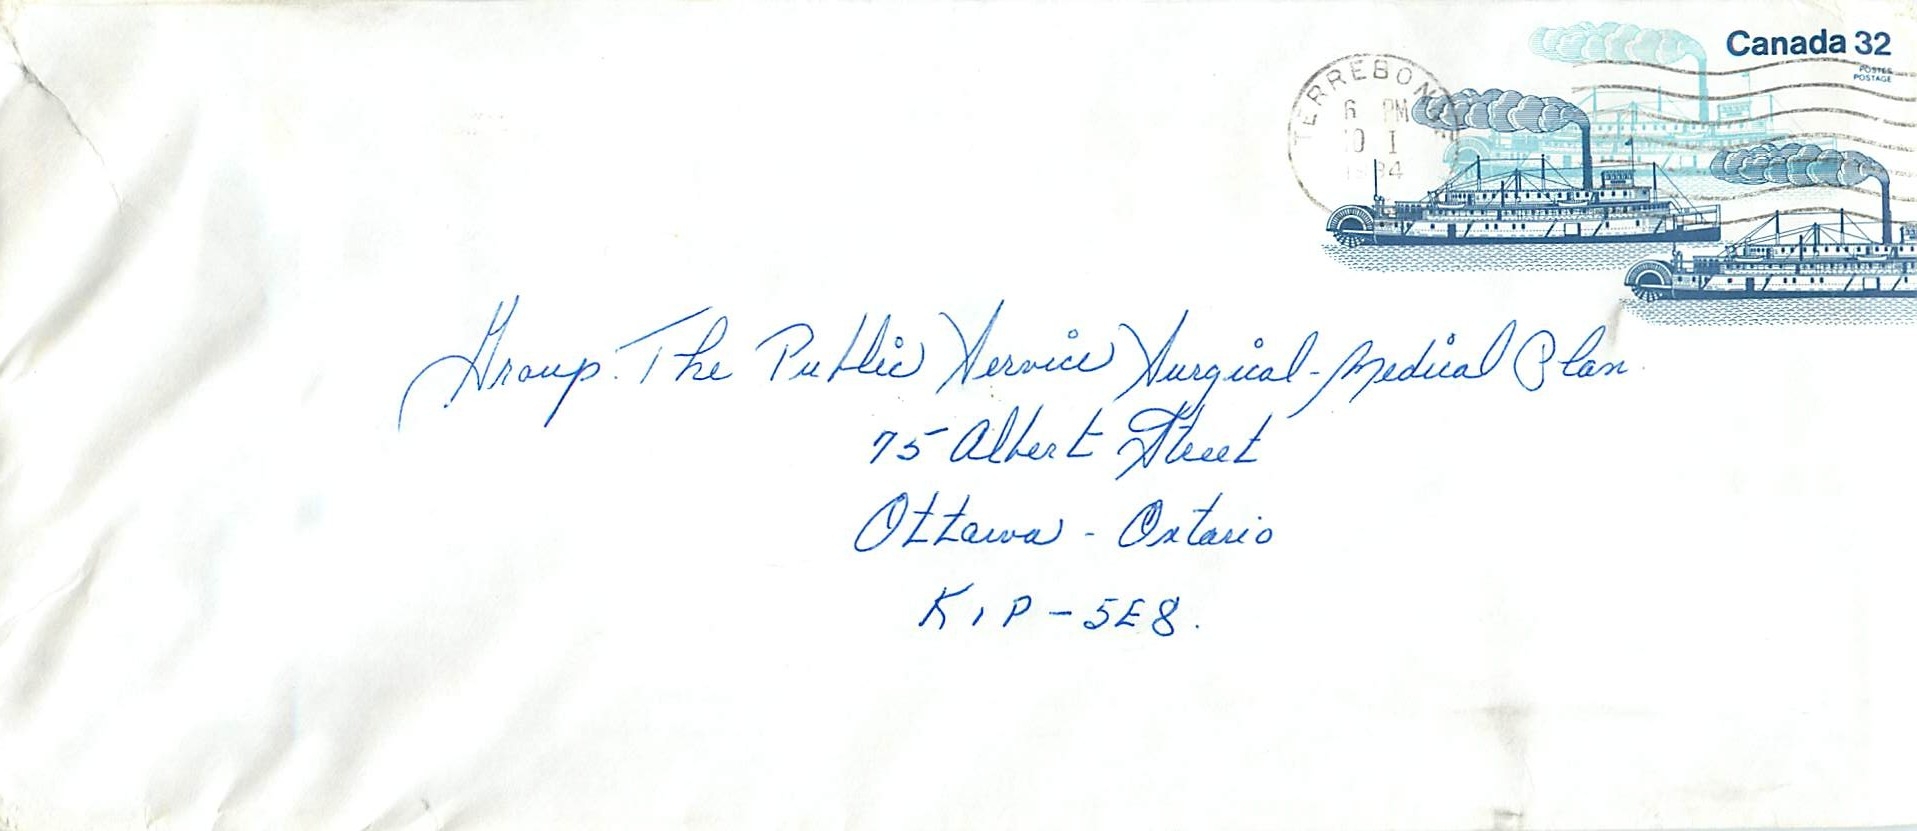 Canada 32
POSTES
POSTAGE
TERREBONNE
6 PM
10 I
1984
Group: The Public Service Surgical-Medical Plan
75 Albert Street
Ottawa - Ontario
K1P-5E8.